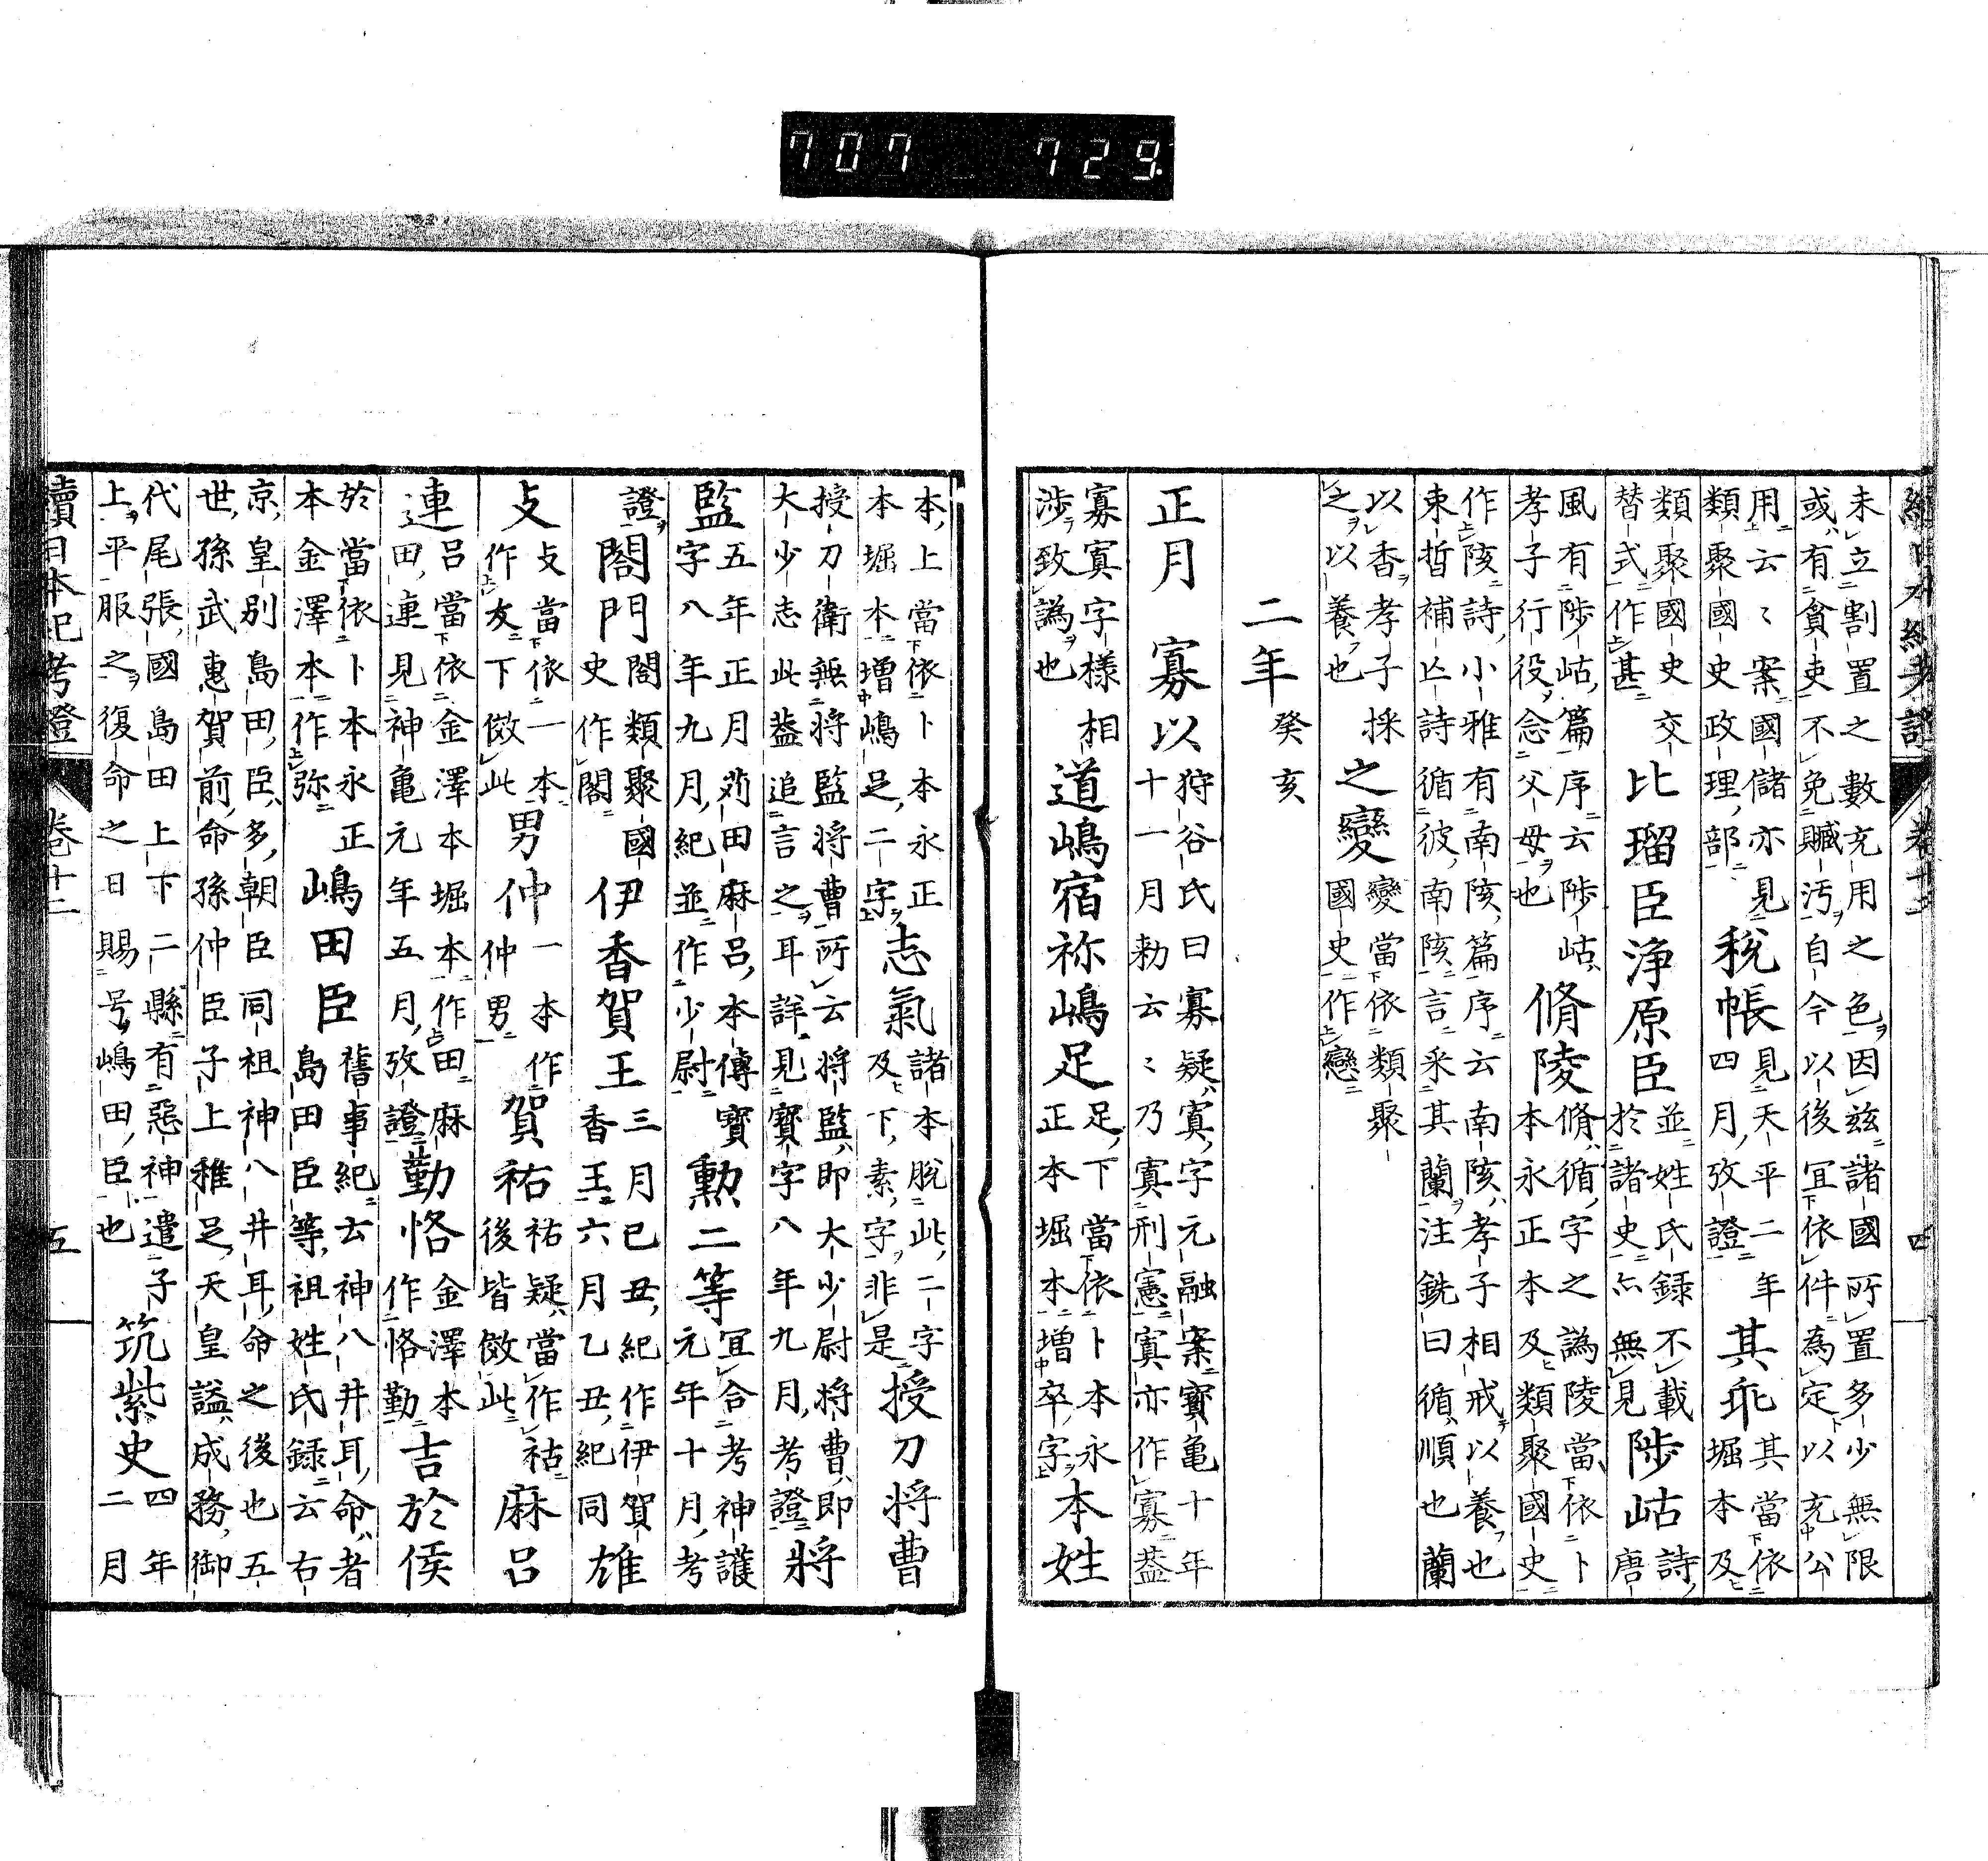 707 729.
續日本紀考證 卷十二 四
未立割置之數充用之色因茲諸國所置多少無限
或有貪吏不免贓汚自今以後宜依件為定以充公
用云〻案國儲亦見
類聚國史政理部
税帳
見天平二年
四月攷證
其乖
其當依
堀本及
類聚國史
替式作甚
交比瑠臣浄原臣
並姓氏録不載
於諸史亦無見
陟岵
詩
唐
風有陟岵篇序云陟岵
孝子行役念父母也
脩陵
脩循字之譌陵當依卜
本永正本及類聚國史
作陔詩小雅有南陔篇序云南陔孝子相戒以養也
束晳補亡詩循彼南陔言采其蘭注銑曰循順也蘭
以香孝子採
之以養也
之變
變當依類聚
國史作戀
二年
癸亥
正月
寡以
狩谷氏曰寡疑寘字元融案寶亀十年
十一月勅云〻乃寘刑憲寘亦作寡蓋
寡寘字様相
渉致譌也
道嶋宿祢嶋足
足下當依卜本永
正本堀本増卒字
本姓
本上當依卜本永正
本堀本増嶋足二字
志氣
諸本脱此二字
及下素字非是
授刀将曹
授刀衛無将監将曹所云将監即大少尉将曹即
大少志此蓋追言之耳詳見寶字八年九月考證
將監
五年正月苅田麻呂本傳寶
字八年九月紀並作少尉
勳二等
宜合考神護
元年十月考
證
閤門
閤類聚國
史作閣
伊香賀王
三月己丑紀作伊賀
香王六月乙丑紀同
雄攴
攴當依一本
作友下倣此
男仲
一本作
仲男
賀祐
祐疑當作祜
後皆倣此
麻呂連
呂當依金澤本堀本作田麻
田連見神亀元年五月攷證
勤恪
金澤本
作恪勤
吉於侯
於當依卜本永正
本金澤本作弥
嶋田臣
舊事紀云神八井耳命者
島田臣等祖姓氏録云右
京皇別島田臣多朝臣同祖神八井耳命之後也五
世孫武惠賀前命孫仲臣子上稚足天皇謚成務御
代尾張國島田上下二縣有惡神遣子
上平服之復命之日賜号嶋田臣也
筑紫史
四年
二月
續日本紀考證 卷十二 五